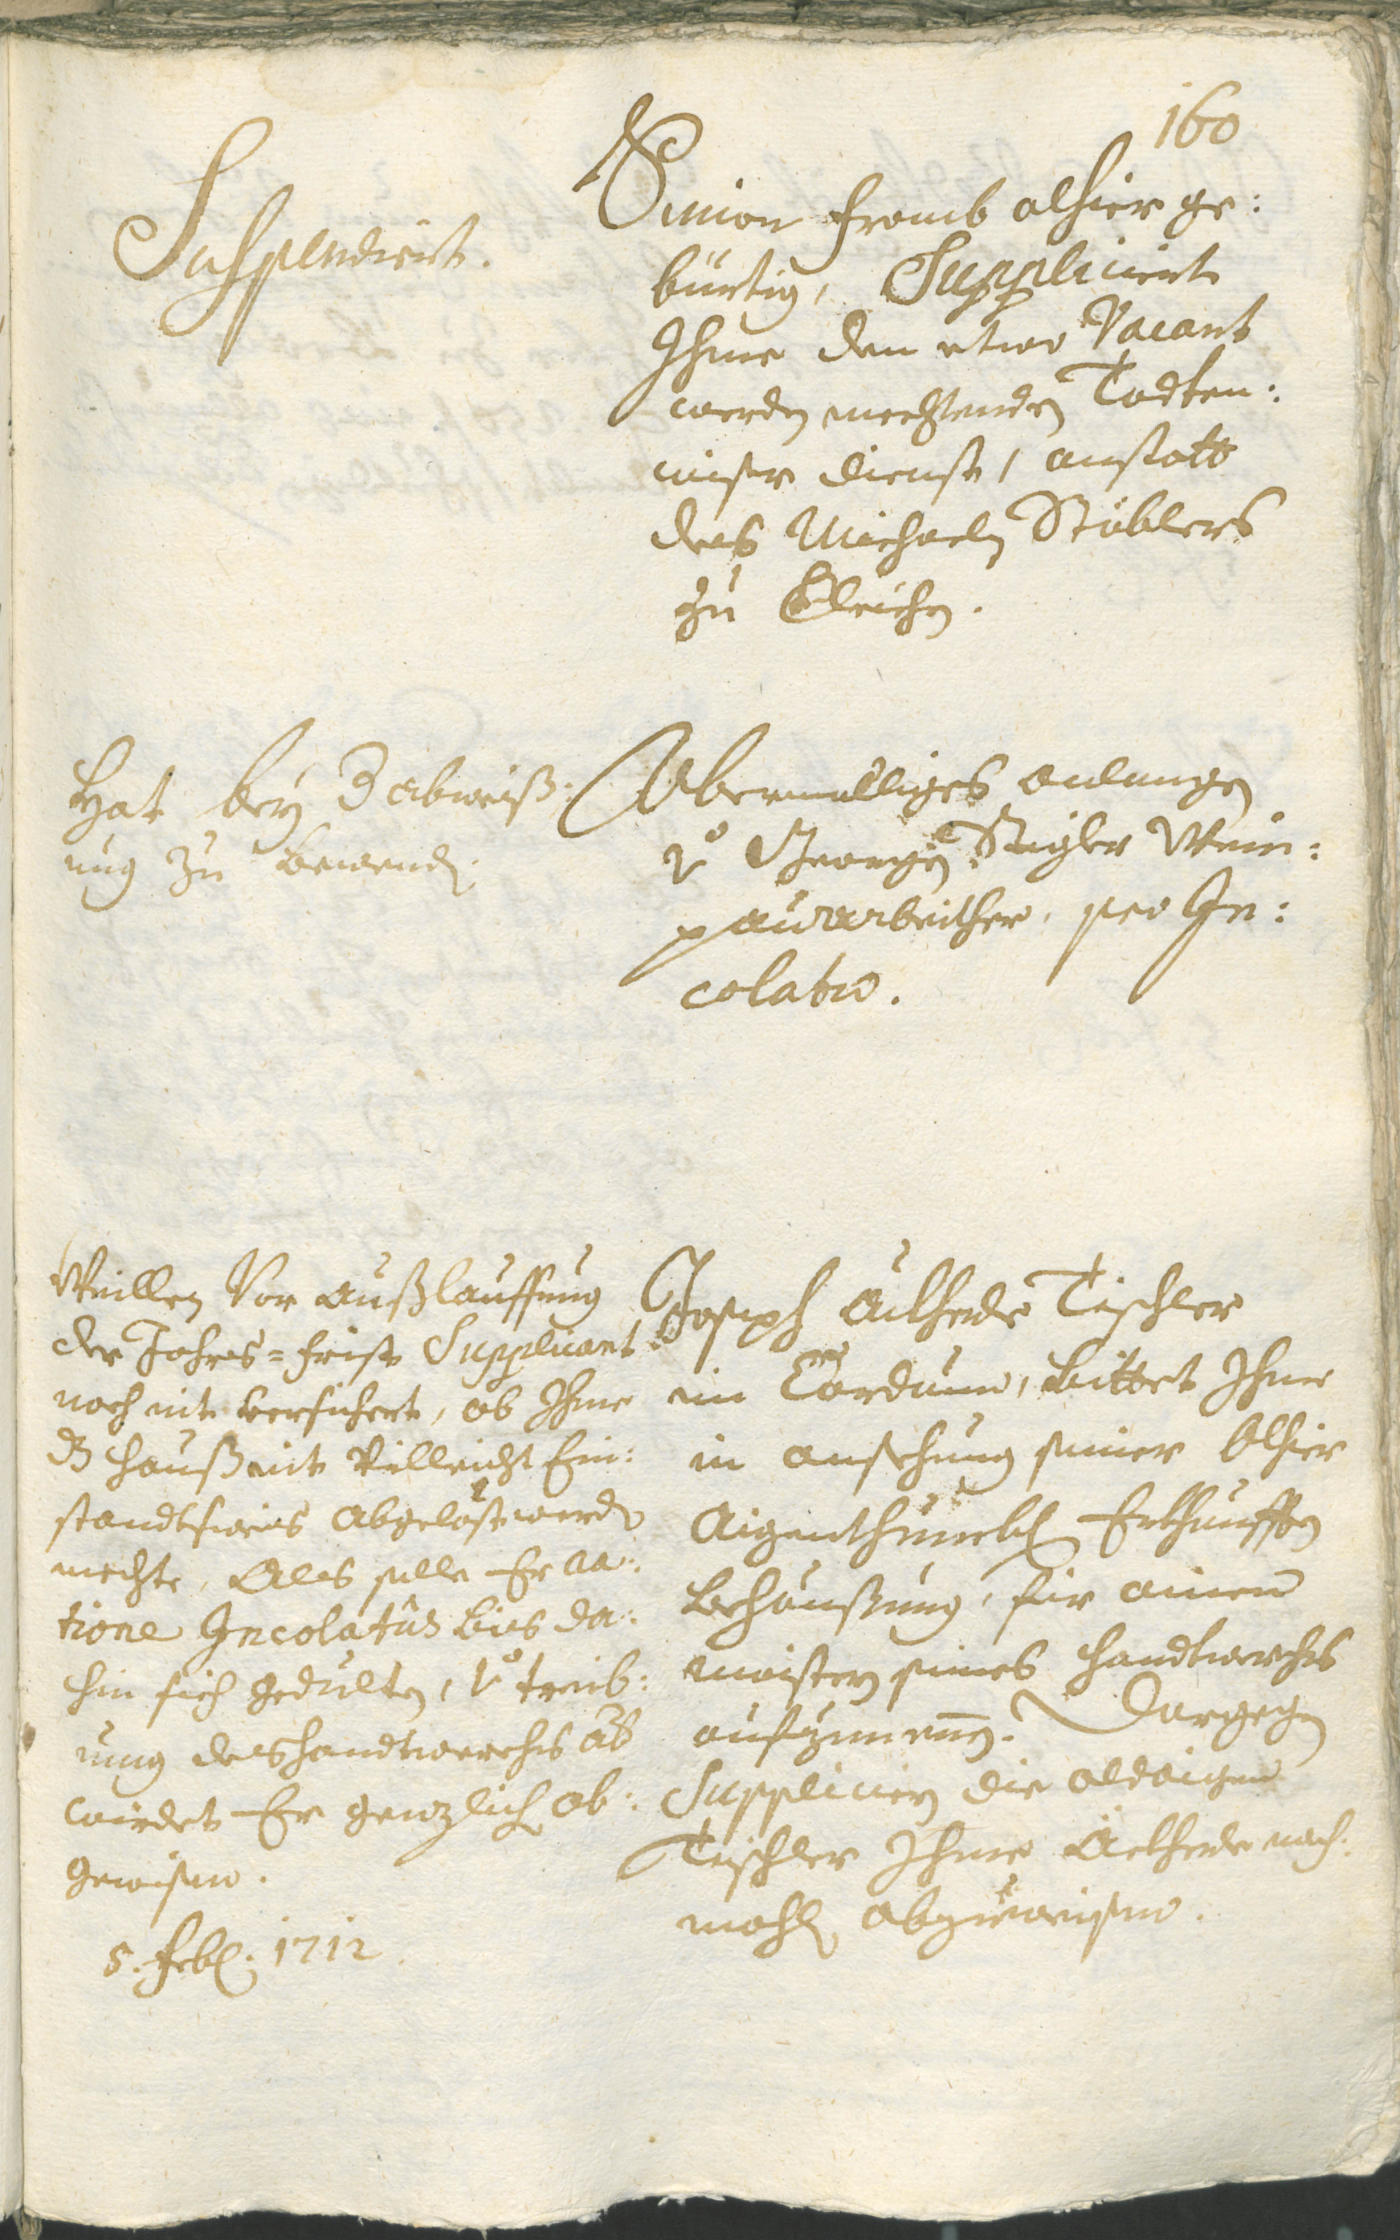 160
Suspendiert.
Simon Fromb alhier ge:
bürtig, Suppliciert
Ihme den etwo Vacant
werden mechtenden Todten:
wiser dienst, anstatt
dess Michaeln Stäblers
zu Verleichen.
Hat bey 3 abweiß:
ung zu bewenden.
Abermalliges anlangen
v. Georgen Stigler Wein:
paurarbeither, pro In:
colatu.
Weillen Vor außlauffung
der Jahrs=frist Supplicant
noch nit versichert, ob Ihme
dz hauß nit Villeicht Ein:
standtsweis Abgelöst werden
mechte, Als solle Er ra:
tione Incolatus bies da:
hin sich gedulten, v. treib:
ung des handtwerchs ab
wirdet Er genzlich ab:
gewisen.
5. Feb: 1712
Joseph Äberde Tischler
im Cardaun, bittet Ihme
in ansehung seiner Alhier
Aigenthumblich Erkhaufften
Behaußung, fir ainen
maistern seines handtwerchs
aufzunemen. Dargegen
Supplicien die aldaigen
Tischler Ihme Äberde noch:
mahlen abzuweisen.